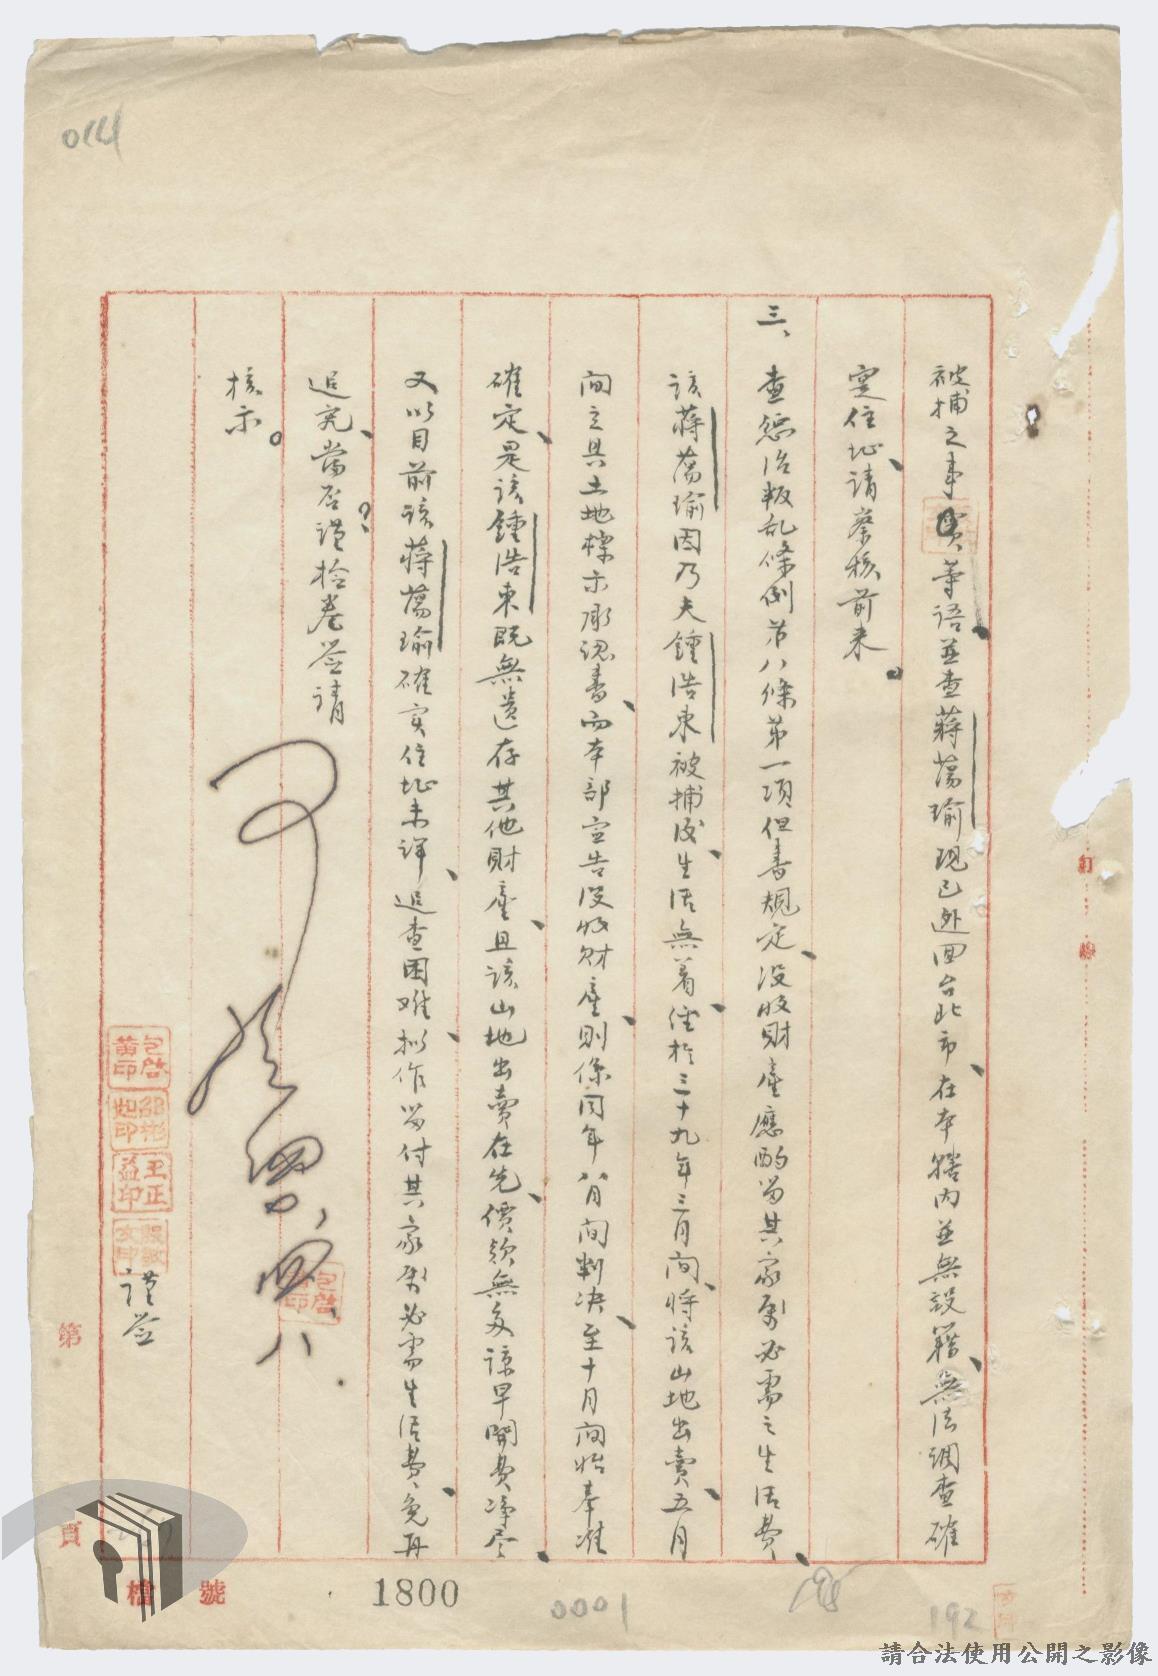 014
被捕之事實等語並查蔣蕩瑜現已遷回台北市、在本轄內並無設籍、無法調查確
定住址、請察核前來。
三、查懲治叛乱條例第八條第一項但書規定、沒收財產應酌留其家屬必需之生活費、
該蔣蕩瑜因乃夫鍾浩東被捕後、生活無着、經於三十九年三月間、將該山地出賣、五月
間立具土地標示承認書、而本部宣告沒收財產、則係同年八月間判決、至十月間始奉准
確定、是該鍾浩東既無遺存其他財產、且該山地出賣在先、價款無多、諒早開費淨尽、
又以目前該蔣蕩瑜確实住址未詳、追查困难、拟作留付其家屬必需生活費、免再
追究、當否？謹檢卷簽請
核示。
謹簽
包啓黄印
王正益印
第
頁
檔
號
1800
0001
192
請合法使用公開之影像